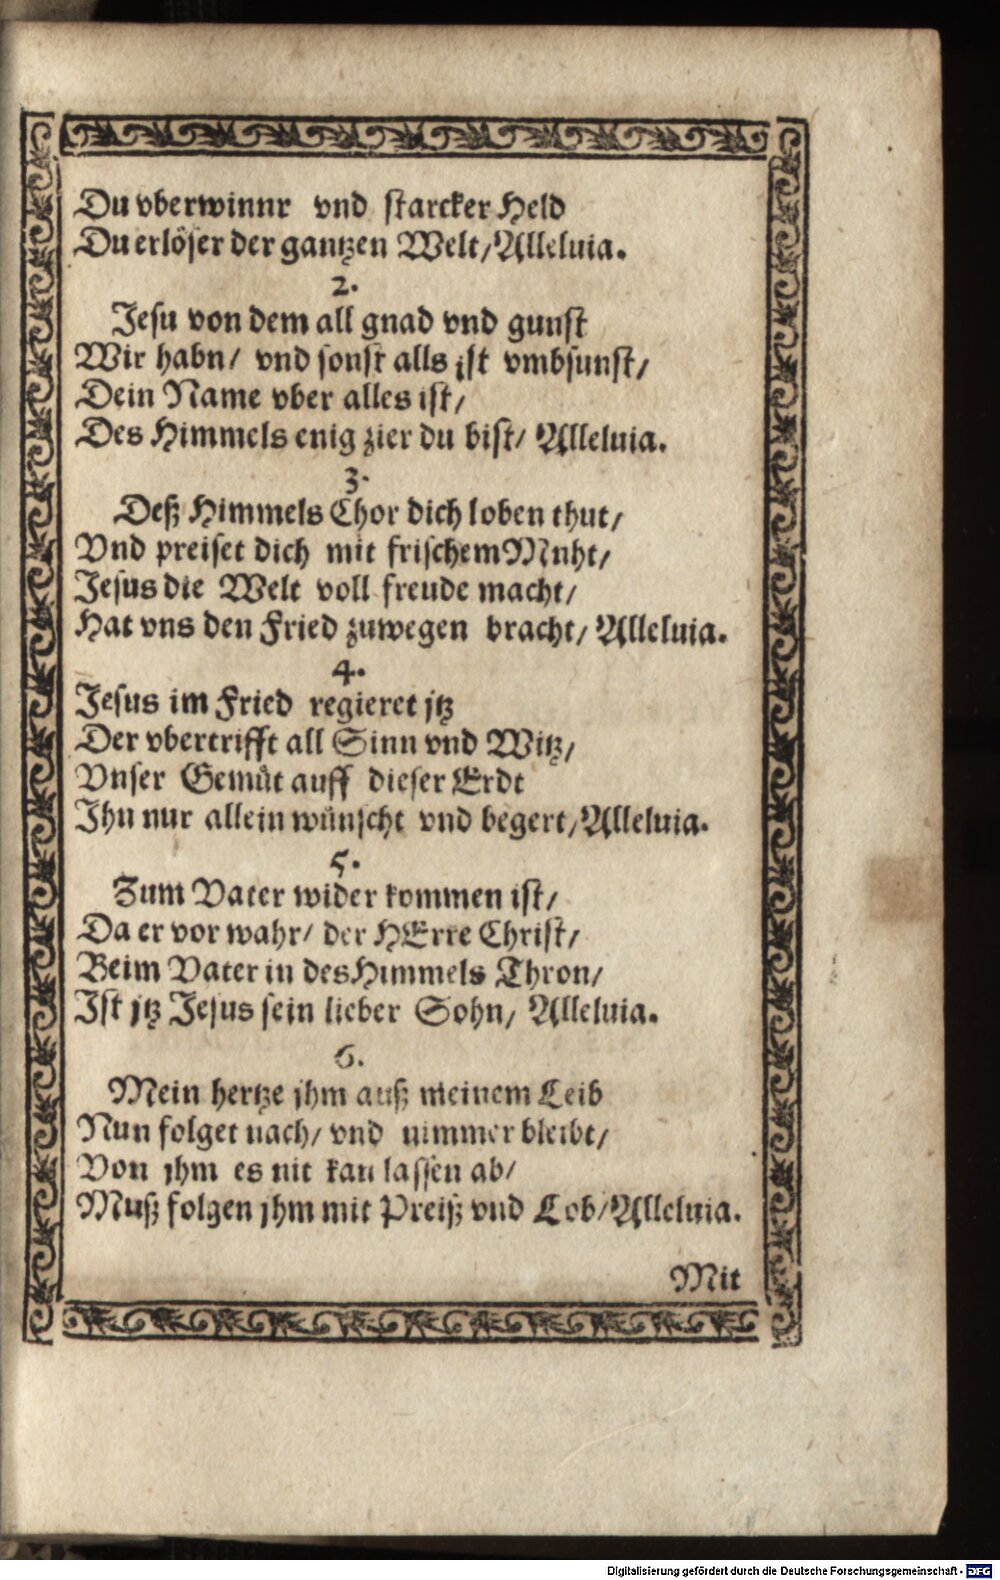 Du vberwinnr vnd starcker Held
Du erlöser der gantzen Welt/Alleluia.
2.
Jesu von dem all gnad vnd gunst
Wir habn/ vnd sonst alls jst vmbsunst/
Dein Name vber alles ist/
Des Himmels enig zier du bist/ Alleluia.
3.
Deß Himmels Chor dich loben thut/
Vnd preiset dich mit frischem Mnht/
Jesus die Welt voll freude macht/
Hat vns den Fried zuwegen bracht/ Alleluia.
4.
Jesus im Fried regieret jtz
Der vbertrifft all Sinn vnd Witz/
Vnser Gemüt auff dieser Erdt
Ihn nur allein wünscht vnd begert/Alleluia.
5.
Zum Vater wider kommen ist/
Da er vor wahr/ der HErre Christ/
Beim Vater in des Himmels Thron/
Ist jtz Jesus sein lieber Sohn/ Alleluia.
6.
Mein hertze jhm auß meinem Leib
Nun folget nach/ vnd nimmer bleibt/
Von jhm es nit kan lassen ab/
Muß folgen jhm mit Preiß vnd Lob/Alleluia.
Mit
Digitalisierung gefördert durch die Deutsche Forschungsgemeinschaft - DFG